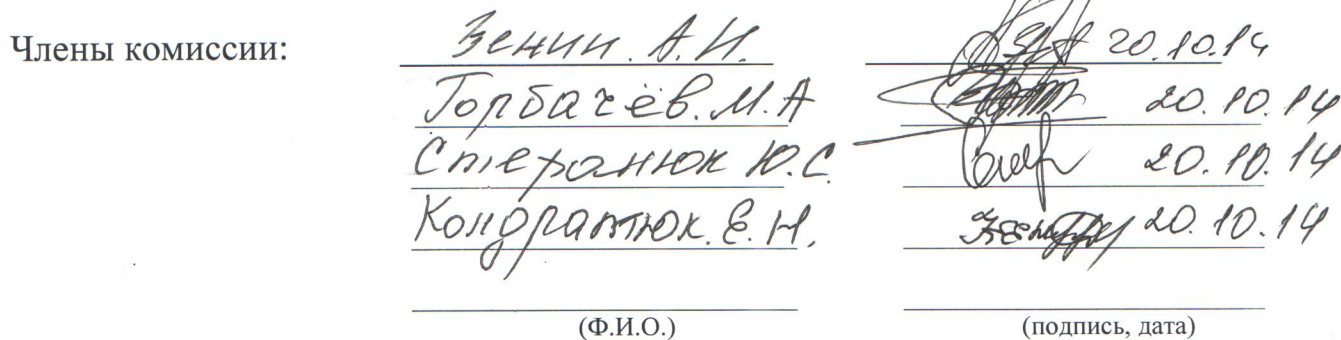 Члены комиссии: Зенин. А.И. 20.10.14
Горбачёв. М.А 20.10.14
Степанюк Ю.С. 20.10.14
Кондратюк. Е.Н. 20.10.14
(Ф.И.О.) (подпись, дата)